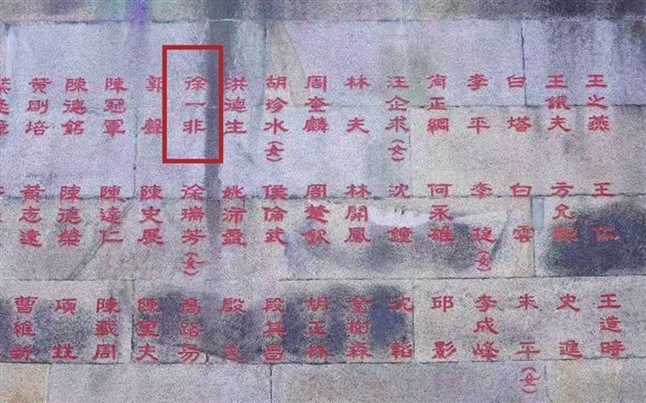 王之燕
王鐵夫
白塔
李平
正綱
汪企求(女)
林夫
周奎麟
胡珍水(女)
洪德生
徐一非
郭聲
陳冠軍
陳德銘
黃剛培
王仁
方允
白雲
李(女)
何永雄
沈鐘
林開鳳
周楚
侯倫武
姚沛
徐瑞芳(女)
陳史展
陳達仁
陳德榮
黃志遠
王造時
史進
朱平(女)
李成峰
邱影
沈韜
金樹森
胡正林
段其昌
殷
高路易
陳里夫
陳載周
項
曹維新